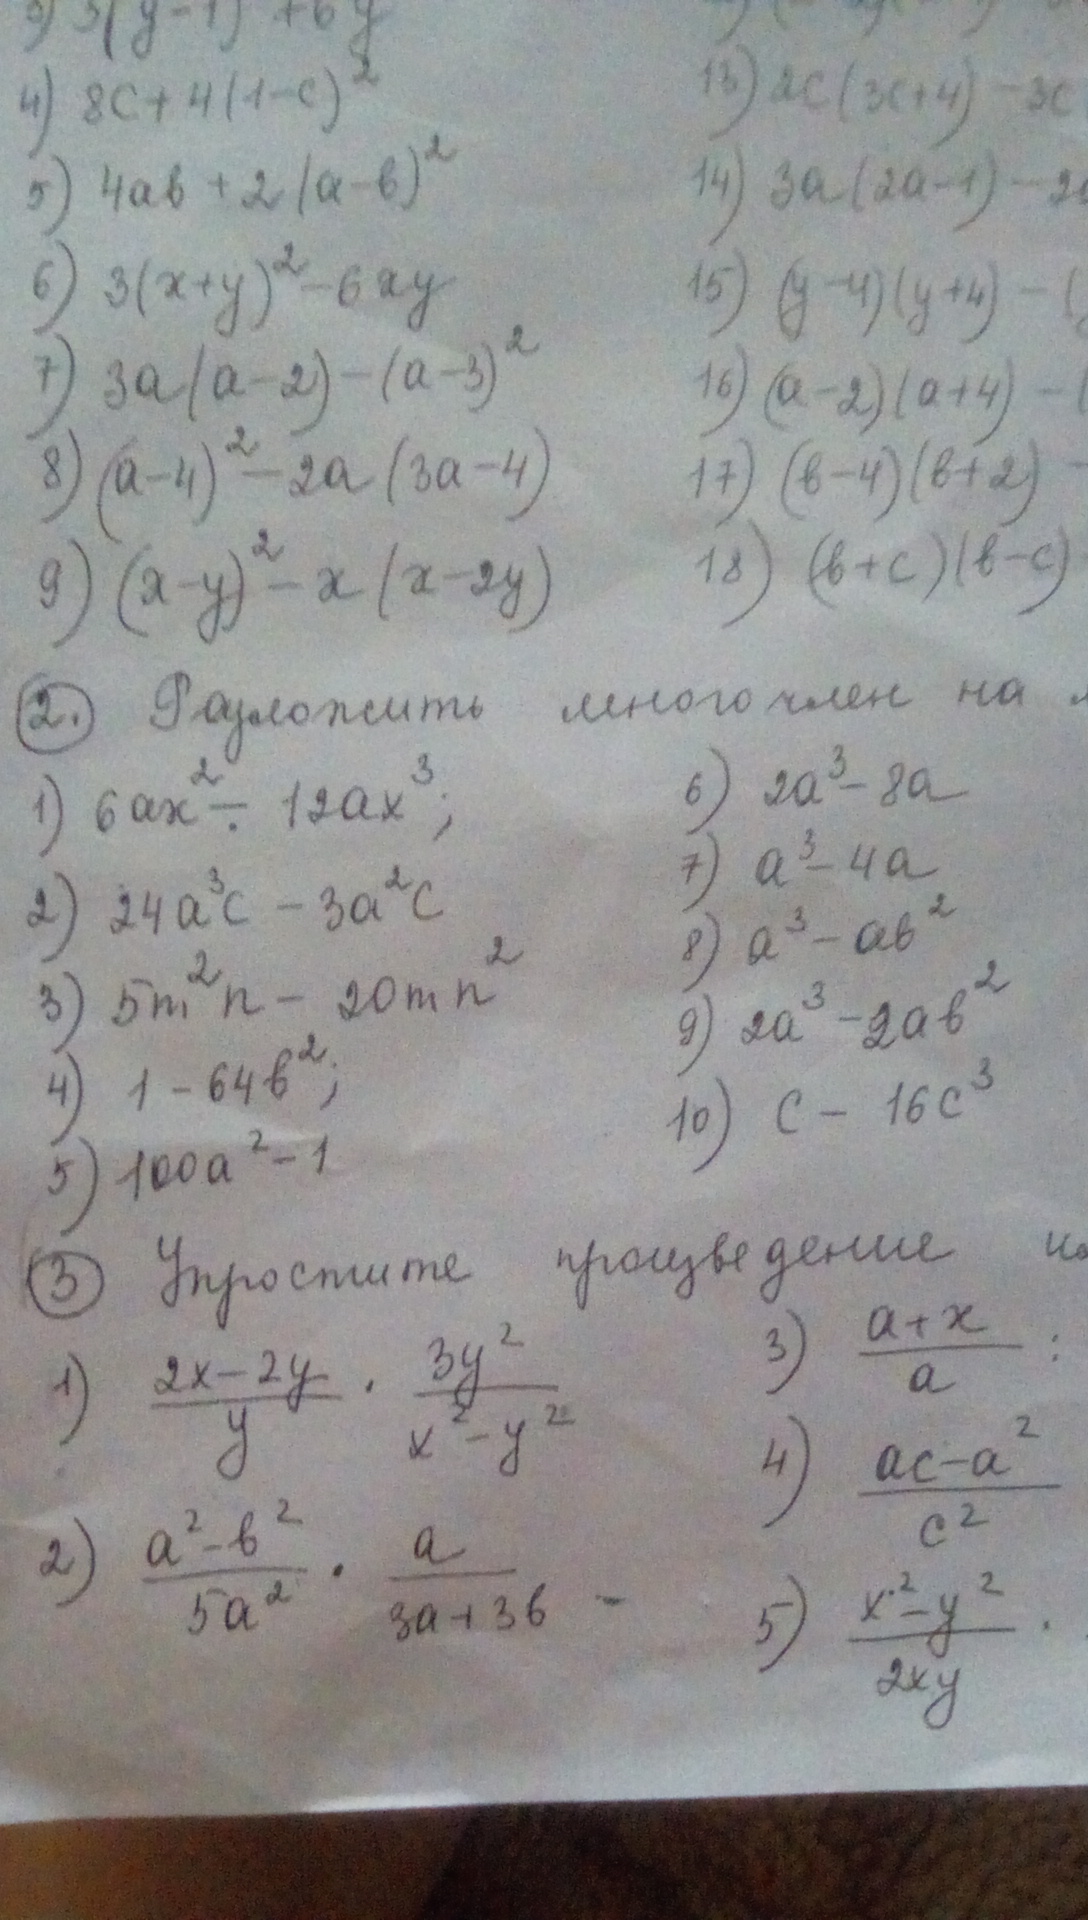 4) 8c + 4(1-c)²
5) 4ab + 2(a-b)²
6) 3(x+y)² - 6xy
7) 3a(a-2) - (a-3)²
8) (a-4)² - 2a(3a-4)
9) (x-y)² - x(x-2y)
13) 2c(3c+4) - 3c
14) 3a(2a-1) - 2a
15) (y-4)(y+4) - (
16) (a-2)(a+4) - (
17) (b-4)(b+2) -
18) (b+c)(b-c)
2. Разложить многочлен на
1) 6ax² ÷ 12ax³;
2) 24a³c - 3a²c
3) 5m²n - 20mn²
4) 1 - 64b²;
5) 100a² - 1
6) 2a³ - 8a
7) a³ - 4a
8) a³ - ab²
9) 2a³ - 2ab²
10) c - 16c³
3 Упростите произведение
1) (2x-2y)/y · 3y²/(x²-y²)
2) (a²-b²)/5a² · a/(3a+3b) -
3) (a+x)/a :
4) (ac-a²)/c²
5) (x²-y²)/2xy ·